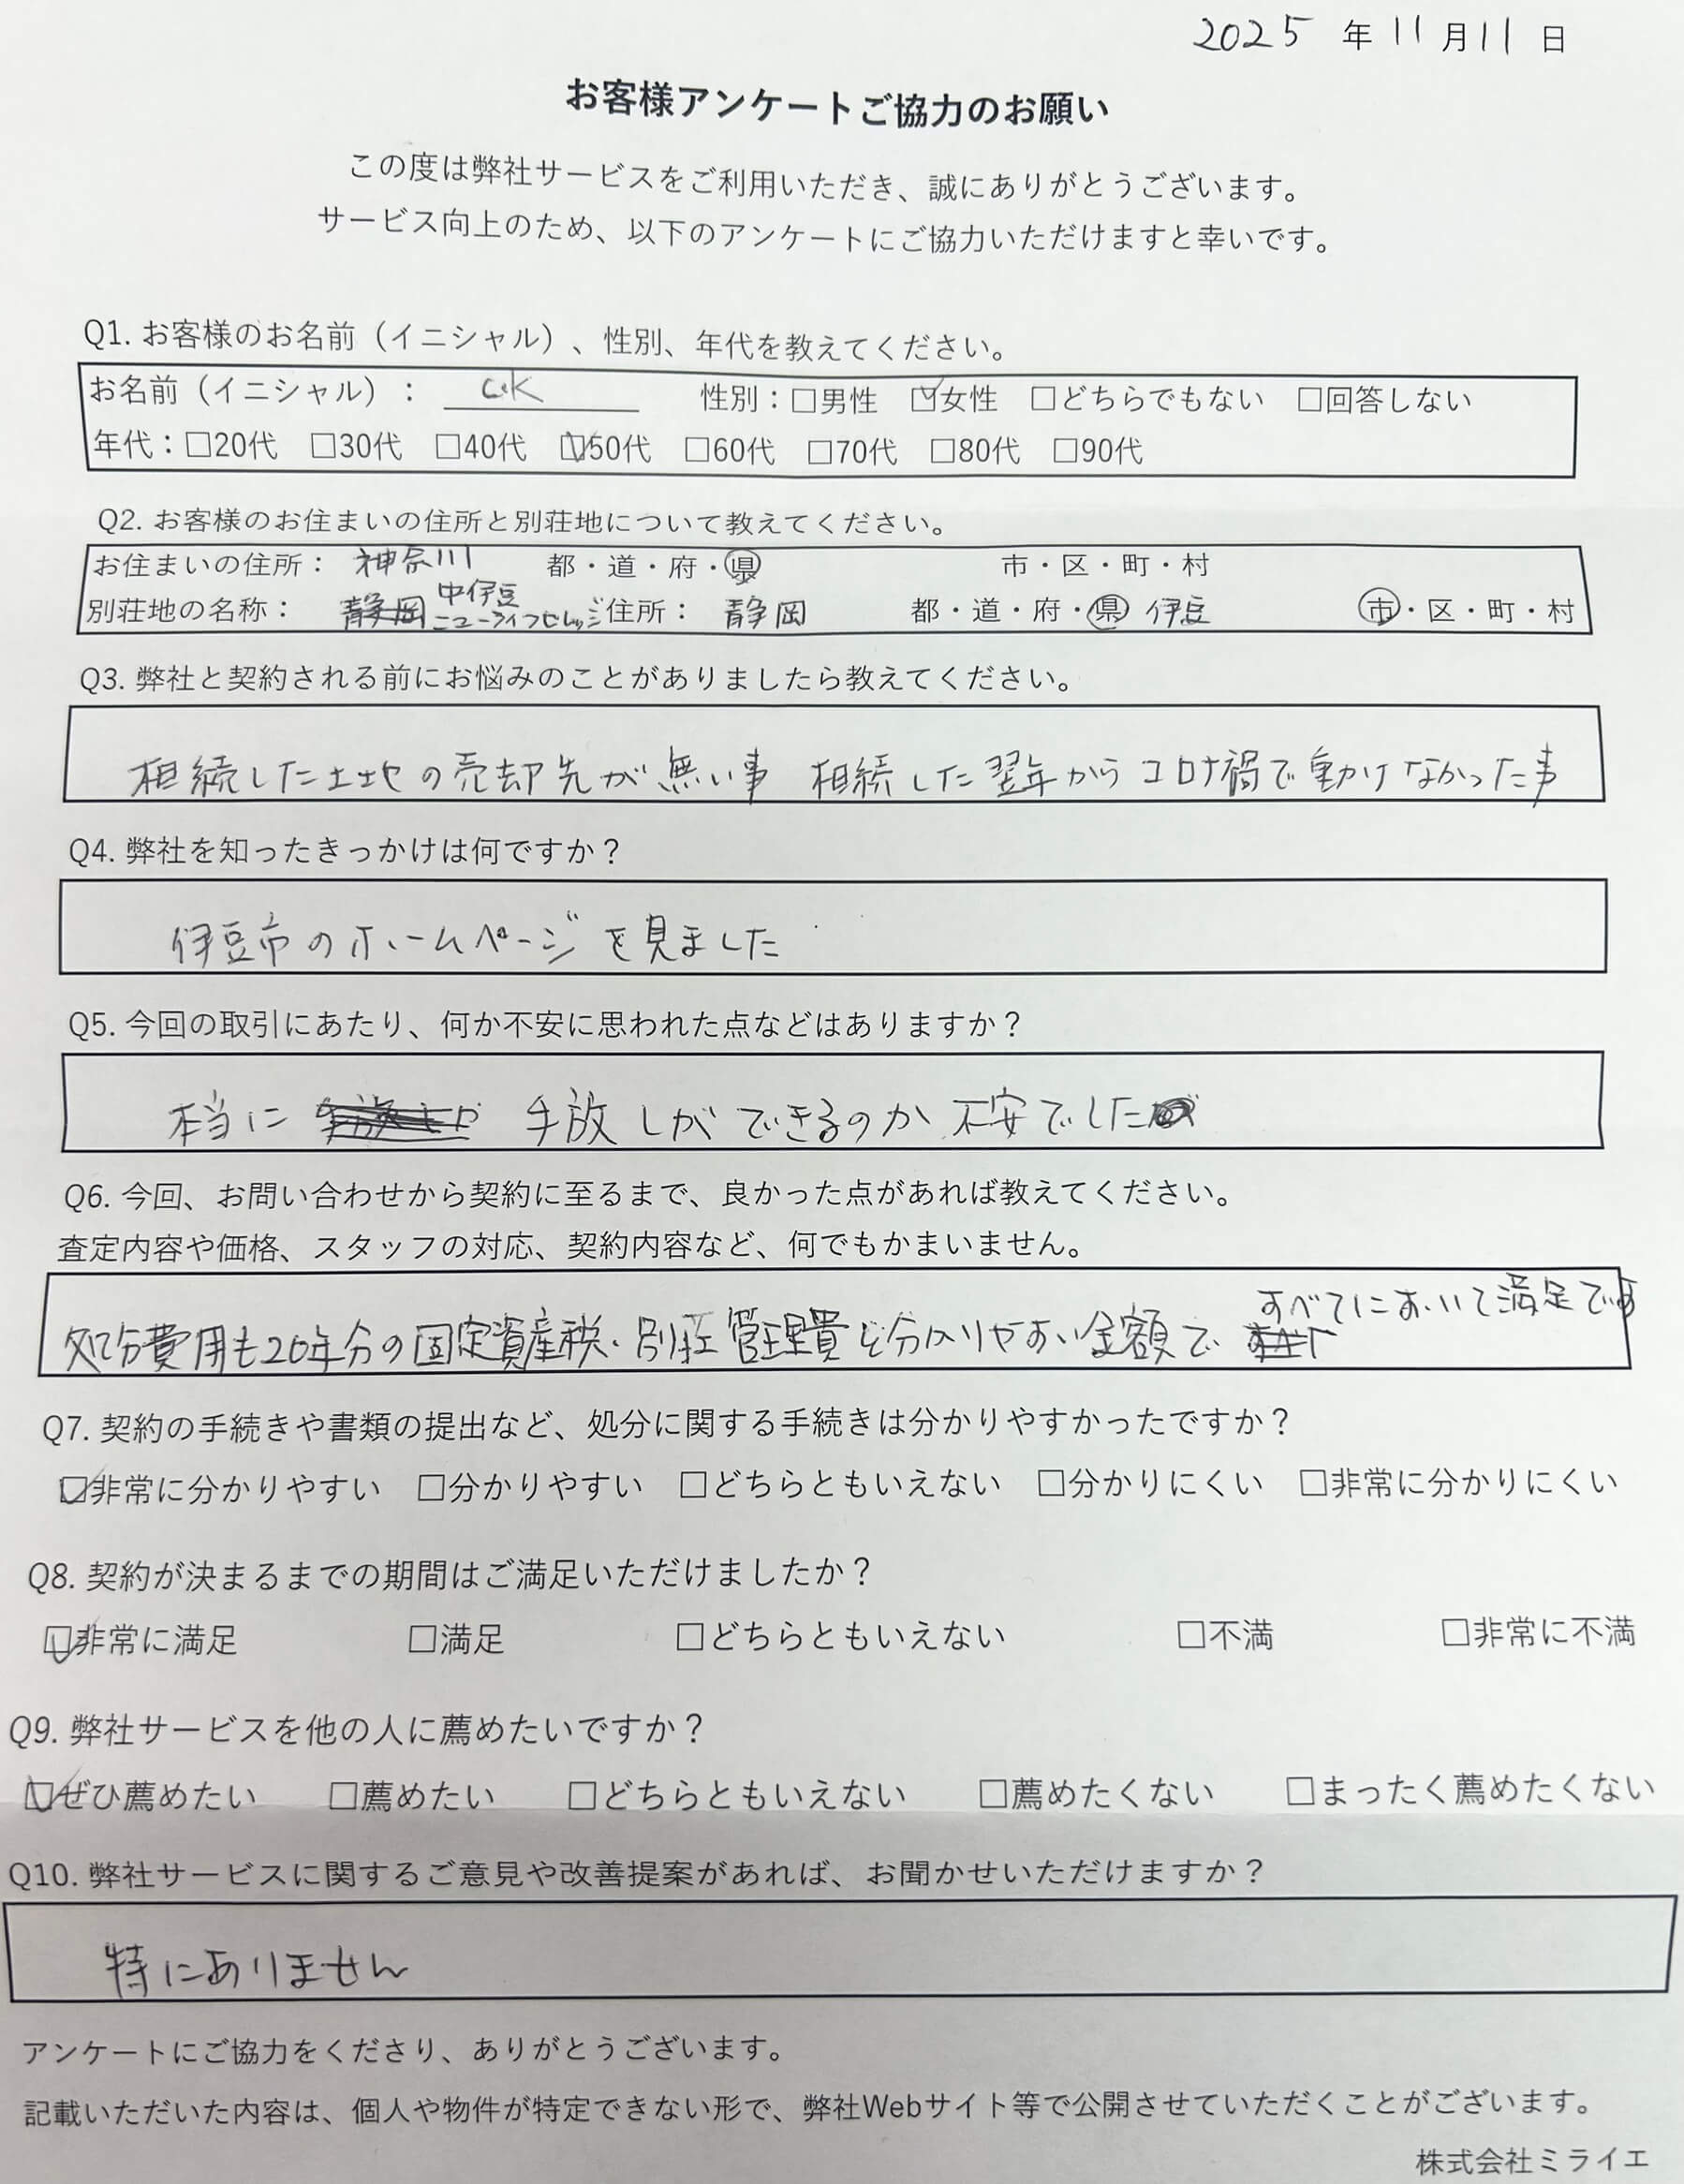 2025 年 11 月 11 日
お客様アンケートご協力のお願い
この度は弊社サービスをご利用いただき、誠にありがとうございます。
サービス向上のため、以下のアンケートにご協力いただけますと幸いです。
Q1. お客様のお名前（イニシャル）、性別、年代を教えてください。
お名前（イニシャル）： C.K 性別：□男性 ☑女性 □どちらでもない □回答しない
年代：□20代 □30代 □40代 ☑50代 □60代 □70代 □80代 □90代
Q2. お客様のお住まいの住所と別荘地について教えてください。
お住まいの住所： 神奈川 都・道・府・県 市・区・町・村
別荘地の名称： 静岡 中伊豆ニューライフセレッジ 住所： 静岡 都・道・府・県 伊豆 市・区・町・村
Q3. 弊社と契約される前にお悩みのことがありましたら教えてください。
相続した土地の売却先が無い事 相続した翌年からコロナ禍で動けなかった事
Q4. 弊社を知ったきっかけは何ですか？
伊豆市のホームページを見ました
Q5. 今回の取引にあたり、何か不安に思われた点などはありますか？
本当に 手放しができるのか不安でした
Q6. 今回、お問い合わせから契約に至るまで、良かった点があれば教えてください。
査定内容や価格、スタッフの対応、契約内容など、何でもかまいません。
処分費用も20年分の固定資産税・別荘管理費と分かりやすい金額で すべてにおいて満足です
Q7. 契約の手続きや書類の提出など、処分に関する手続きは分かりやすかったですか？
☑非常に分かりやすい □分かりやすい □どちらともいえない □分かりにくい □非常に分かりにくい
Q8. 契約が決まるまでの期間はご満足いただけましたか？
☑非常に満足 □満足 □どちらともいえない □不満 □非常に不満
Q9. 弊社サービスを他の人に薦めたいですか？
☑ぜひ薦めたい □薦めたい □どちらともいえない □薦めたくない □まったく薦めたくない
Q10. 弊社サービスに関するご意見や改善提案があれば、お聞かせいただけますか？
特にありません
アンケートにご協力をくださり、ありがとうございます。
記載いただいた内容は、個人や物件が特定できない形で、弊社Webサイト等で公開させていただくことがございます。
株式会社ミライエ